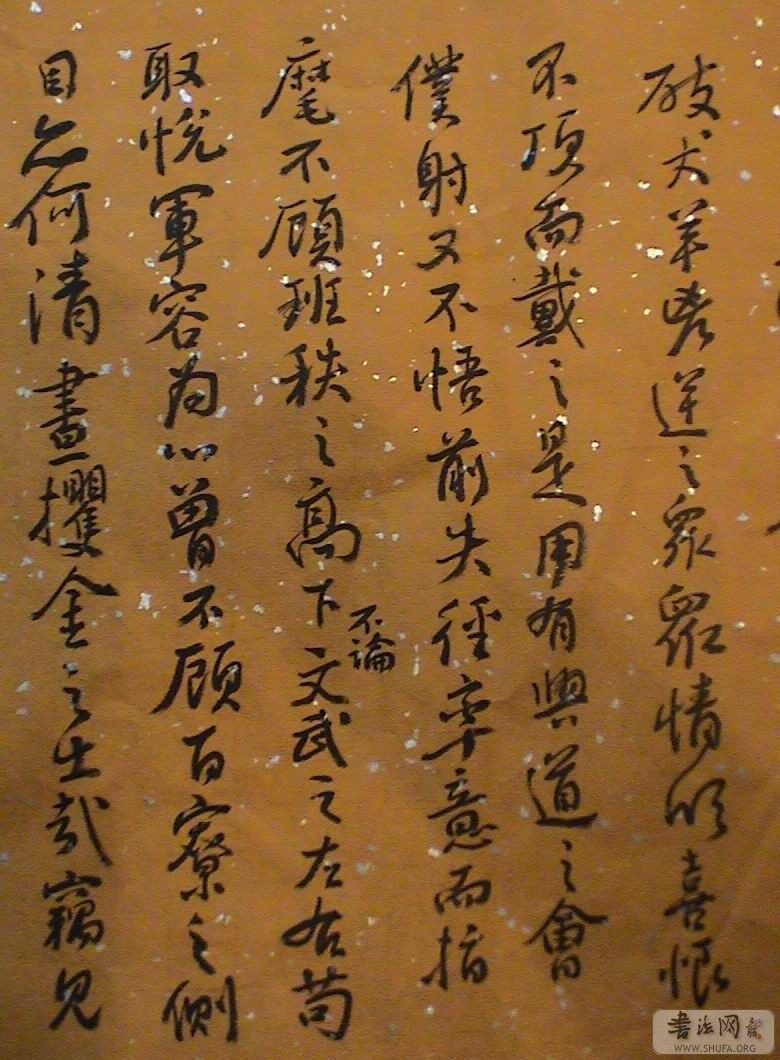 破犬羊兇逆之衆衆情欣喜恨
不頂而戴之是用有興道之會
僕射又不悟前失徑率意而指
麾不顧班秩之高下不論文武之左右苟
取悅軍容為心曾不顧百寮之側
目亦何清晝攫金之士哉竊見
書法网
WWW.SHUFA.ORG